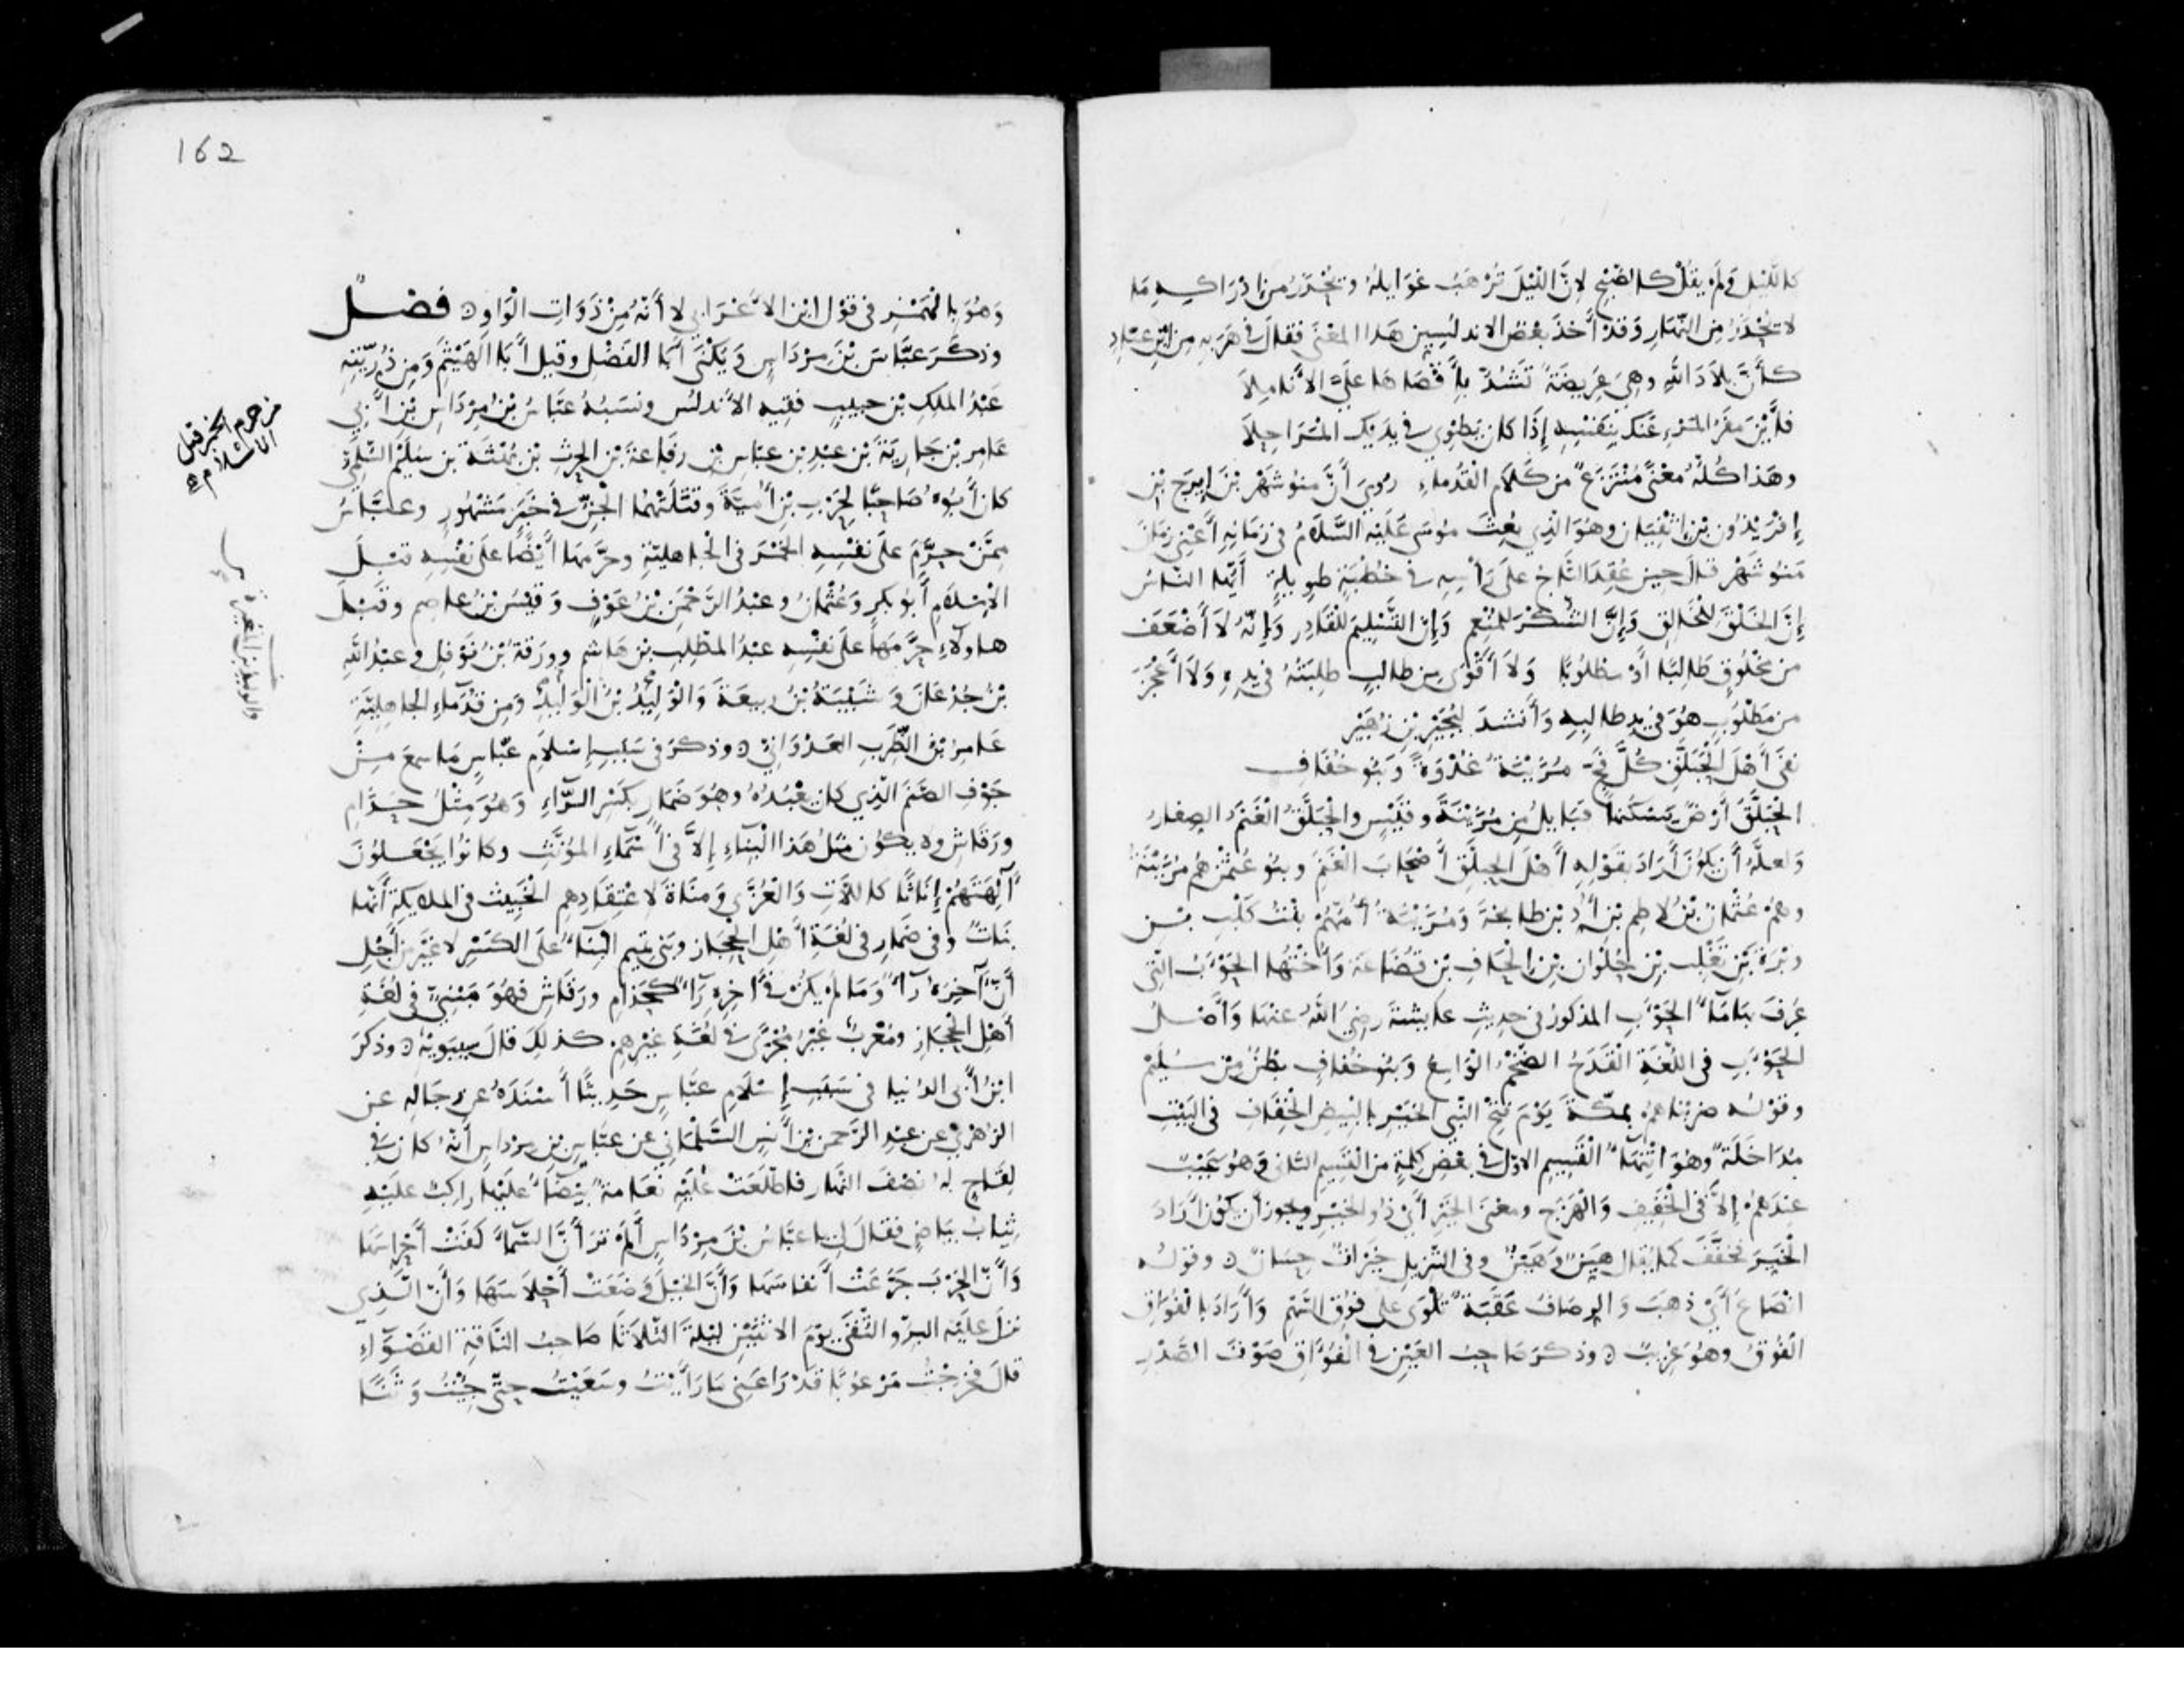 كالليل ولم يقل كالصبح لان الليل ترهب غوايله وتحذر من ادراكه ما
لا تحذر من النهار وقد أخذ بعض الاندلسيين هذا المعنى فقال في هربه من ابن عباد
كأن بلاد الله وهي عريضة تشد بأقصاها علي الأناملا
فأين مفر المرء عنك بنفسه إذا كان يطوي في يديك المراحلا
وهذا كله معنى منتزع من كلام القدماء روي أن منوشهر بن إيرج بن
إفريذون بن اثفيان وهو الذي بعث موسى عليه السلام في زمانه أعني زمان
منوشهر قال حين عقد التاج على رأسه في خطبة طويلة أيها الناس
إن الخلق للخالق وإن الشكر للمنعم وإن التسليم للقادر وإنه لا أضعف
من مخلوق طالبا أو مطلوبا ولا أقوى من طالب طلبته في يده ولا أعجز
من مطلوب هو في يد طالبه وأنشد لبجير بن زهير
نفى أهل الحبلق كل فج مزينة غدوة وبنو خفاف
الحبلق أرض يسكنها قبايل من مزينة وقيس والحبلق الغنم الصغار
ولعله أن يكون أراد بقوله أهل الحبلق أصحاب الغنم وبنو عثمن هم مزينة
وهم عثمان بن لاطم بن أد بن طابخة ومزينة أمهم بنت كلب بن
وبرة بن تغلب بن حلوان بن الحاف بن قضاعة وأختها الحوءب التي
عرف بها ماء الحوءب المذكور في حديث عايشة رضي الله عنها وأصل
الحوءب في اللغة القدح الضخم الواسع وبنو خفاف بطن من سليم
وقوله ضربناهم بمكة يوم فتح النبي الخير بالبيض الخفاف في البيت
مداخلة وهو انتهاء القسيم الاول في بعض كلمة من القسيم الثاني وهو عيب
عندهم إلا في الخفيف والهزج ومعنى الخير أي ذو الخير ويجوز أن يكون أراد
الخير فخفف كما يقال هين وهين وفي التنزيل خيرات حسان ٥ وقوله
انصاع أي ذهب والرصاف عقبة تلوى على فوق السهم وأراد بالفواق
الفوق وهو غريب ٥ وذكر صاحب العين في الفواق صوت الصدر
162
وهو بالهمز في قول ابن الأعرابي لا أنه من ذوات الواو ٥ فصل
وذكر عباس بن مرداس ويكنى أبا الفضل وقيل أبا الهيثم ومن ذريته
عبد الملك بن حبيب فقيه الأندلس ونسبه عباس بن مرداس بن أبي
عامر بن جارية بن عبد بن عباس بن رفاعة بن الحرث بن بهثة بن سليم السلمي
كان أبوه صاحبا لحرب بن أمية وقتلتهما الجن في خبر مشهور وعباس
ممن حرم على نفسه الخمر في الجاهلية وحرمها أيضا على نفسه قبل
الإسلام أبو بكر وعثمان وعبد الرحمن بن عوف وقيس بن عاصم وقبل
هاولاء حرمها على نفسه عبد المطلب بن هاشم وورقة بن نوفل وعبد الله
بن جدعان وشيبة بن ربيعة والوليد بن الوليد ومن قدماء الجاهلية
عامر بن الظرب العدواني ٥ وذكر في سبب إسلام عباس ما سمع من
جوف الصنم الذي كان يعبده وهو ضمار بكسر الراء وهو مثل حذام
ورقاش ولا يكون مثل هذا البناء إلا في أسماء المؤنث وكانوا يجعلون
آلهتهم إناثا كاللات والعزى ومناة لاعتقادهم الخبيث في الملايكة أنها
بنات وفي ضمار في لغة أهل الحجاز وبني تميم البناء على الكسر لا غير من أجل
أن آخره راء وما لم يكن في آخره راء كحذام ورقاش فهو مبني في لغة
أهل الحجاز ومعرب غير مجرى في لغة غيرهم كذلك قال سيبويه ٥ وذكر
ابن أبي الدنيا في سبب إسلام عباس حديثا أسنده عن رجاله عن
الزهري عن عبد الرحمن بن أنس السلماني عن عباس بن مرداس أنه كان في
لقاح له نصف النهار فاطلعت عليه نعامة بيضاء عليها راكب عليه
ثياب بياض فقال لي يا عباس بن مرداس ألم تر أن السماء كفت أحراسها
وأن الحرب جرعت أنفاسها وأن الخيل وضعت أحلاسها وأن الذي
نزل عليه البر والتقى يوم الاثنين ليلة الثلاثا صاحب الناقة القصواء
قال فخرجت مرعوبا قد راعني ما رأيت وسعيت حتى جئت وثنا
من حرم الخمر قبل
الاسلام
والوليد بن المغيرة